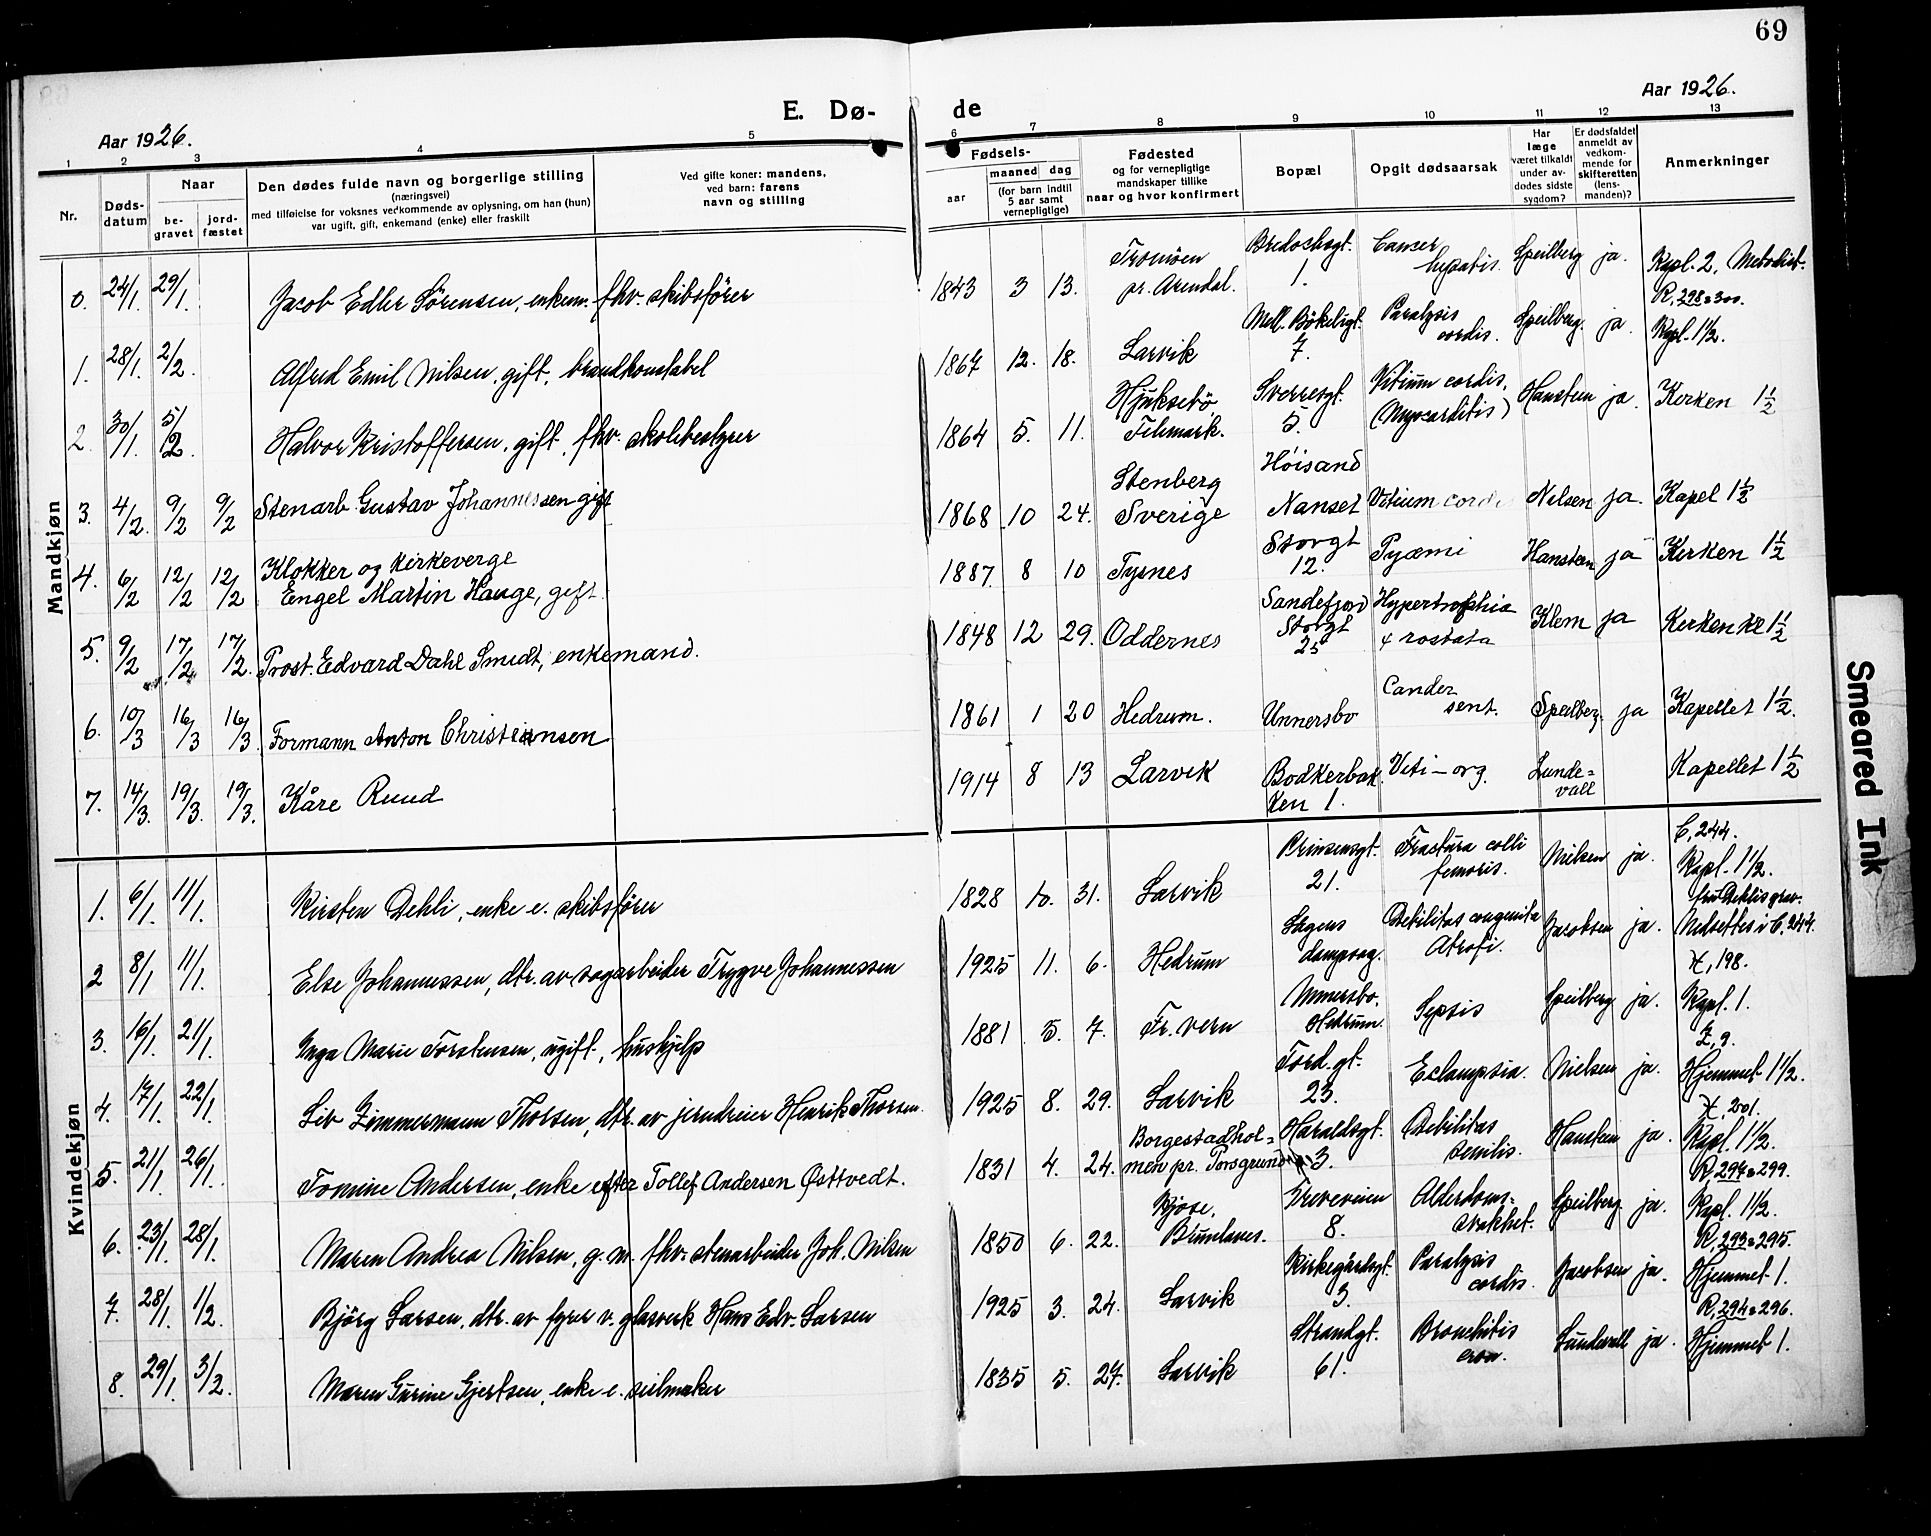 69
Aar 1926.
E. Dø-
de
Aar 1926.
1 2 3 4 5 6 7 8 9 10 11 12 13
Nr.
Døds-
datum
Naar
be-
gravet
jord-
fæstet
Den dødes fulde navn og borgerlige stilling
(næringsvei)
med tilføielse for voksnes vedkommende av oplysning, om han (hun)
var ugift, gift, enkemand (enke) eller fraskilt
Ved gifte koner: mandens,
ved barn: farens
navn og stilling
Fødsels-
aar
maaned dag
(for barn indtil
5 aar samt
vernepligtige)
Fødested
og for vernepligtige
mandskaper tillike
naar og hvor konfirmert
Bopæl
Opgit dødsaarsak
Har
læge
været tilkaldt
under av-
dødes sidste
sygdom?
Er dødsfaldet
anmeldt av
vedkom-
mende for
skifteretten
(lens-
manden)?
Anmerkninger
Mandkjøn
0. 24/1. 29/1. Jacob Edler Sörensen, enkem. fhv. skibsfører 1843 3 13. Tromöen
pr. Arendal. 1. Cancer
hepatis. Speilberg ja. Kapl. 2. Metodist.
R, 298=300.
1. 28/1. 2/2. Alfred Emil Nilsen, gift, brandkonstabel 1867 12. 18. Larvik Mell. Bökeligt.
7. Paralysis
cordis. Speilberg ja. Kapl. 1½.
2. 30/1. 5/2. Halvor Kristoffersen, gift, fhv. skolebestyrer 1864 5. 11. Hjuksebø
Telemark. Sverresgt.
5. Vitium cordis.
(Myocarditis) Hansteen ja. Kirken 1½
3. 4/2. 9/2 9/2 Stenarb. Gustav Johannessen gift 1868 10 24. Stenberg
Sverige Höisand
Nanset Vitium cordis Nilsen ja. Kapel 1½
4. 6/2 12/2 12/2 Klokker og kirkeverge
Engel Martin Hauge, gift. 1887. 8 10 Tysnes Storgt
12. Pyæmi Hansteen ja Kirken 1½
5. 9/2 17/2 17/2. Prost. Edvard Dahl Smidt, enkemand. 1848 12 29. Oddernes Sandefjord
Storgt
25 Hypertrophia
rostata Klem ja Kirken kl 1½
6. 10/3 16/3 16/3. Formann Anton Christiansen 1861 1 20 Hedrum. Unnersbo Cander
sent. Speilberg. ja Kapellet 1½.
7. 14/3. 19/3. 19/3. Kåre Ruud 1914 8 13 Larvik Bödkerbak
ken 1. Viti-org. Lunde=
vall Kapellet 1½
Kvindekjøn
1. 6/1. 11/1. Kirsten Dehli, enke e. skibsfører 1828 10. 31. Larvik Prinsensgt.
21. Fractura colli
femoris. Nielsen ja. C, 244.
Kapl. 1½.
fru Dehlis grav.
Nedsettes i C. 244.
2 8/1. 11/1. Else Johannessen, dtr. av sagarbeider Trygve Johannessen 1925 11. 6. Hedrum Lågens
dampsag. Debilitas congenita
Atrofi. Jacobsen ja. H, 198.
3. 16/1. 21/1. Inga Marie Torstensen, ugift, hushjelp 1881. 5. 7. Fr. vern Unnersbo.
Hedrum. Sepsis Speilberg ja. Kapl. 1.
Z, 9.
4. 17/1. 22/1. Liv Zimmermann Thorsen, dtr. av jerndreier Henrik Thorsen. 1925 8. 29. Larvik Tord. gt.
23. Eclampsia. Nielsen ja. Hjemmet 1½.
H, 201.
5. 21/1. 26/1. Tomine Andersen, enke efter Tollef Andersen Østtvedt. 1831 4. 24. Borgestadhol=
men pr. Porsgrund Haraldsgt.
3. Debilitas
senilis. Hansteen ja. Kapl. 1½.
R, 297=299.
6. 23/1. 28/1. Maren Andrea Nilsen, g. m. fhv. stenarbeider Joh. Nilsen 1850 6. 22. Kjose,
Brunlanes. Greveveien
8. Alderdoms-
svakhet. Speilberg ja. Kapl. 1½.
R, 293=295.
7. 28/1. 1/2. Bjørg Larsen, dtr. av fyrer v. glasverk Hans Edv. Larsen 1925 3. 24. Larvik Kirkegårdsgt.
3. Paralysis
cordis. Jacobsen ja. Hjemmet 1.
R, 294=296.
8. 29/1. 3/2. Maren Gurine Gjertsen, enke e. seilmaker 1835 5. 27. Larvik Strandgt.
61. Bronchitis
cron. Lundevall ja. Hjemmet 1.
Smeared Ink